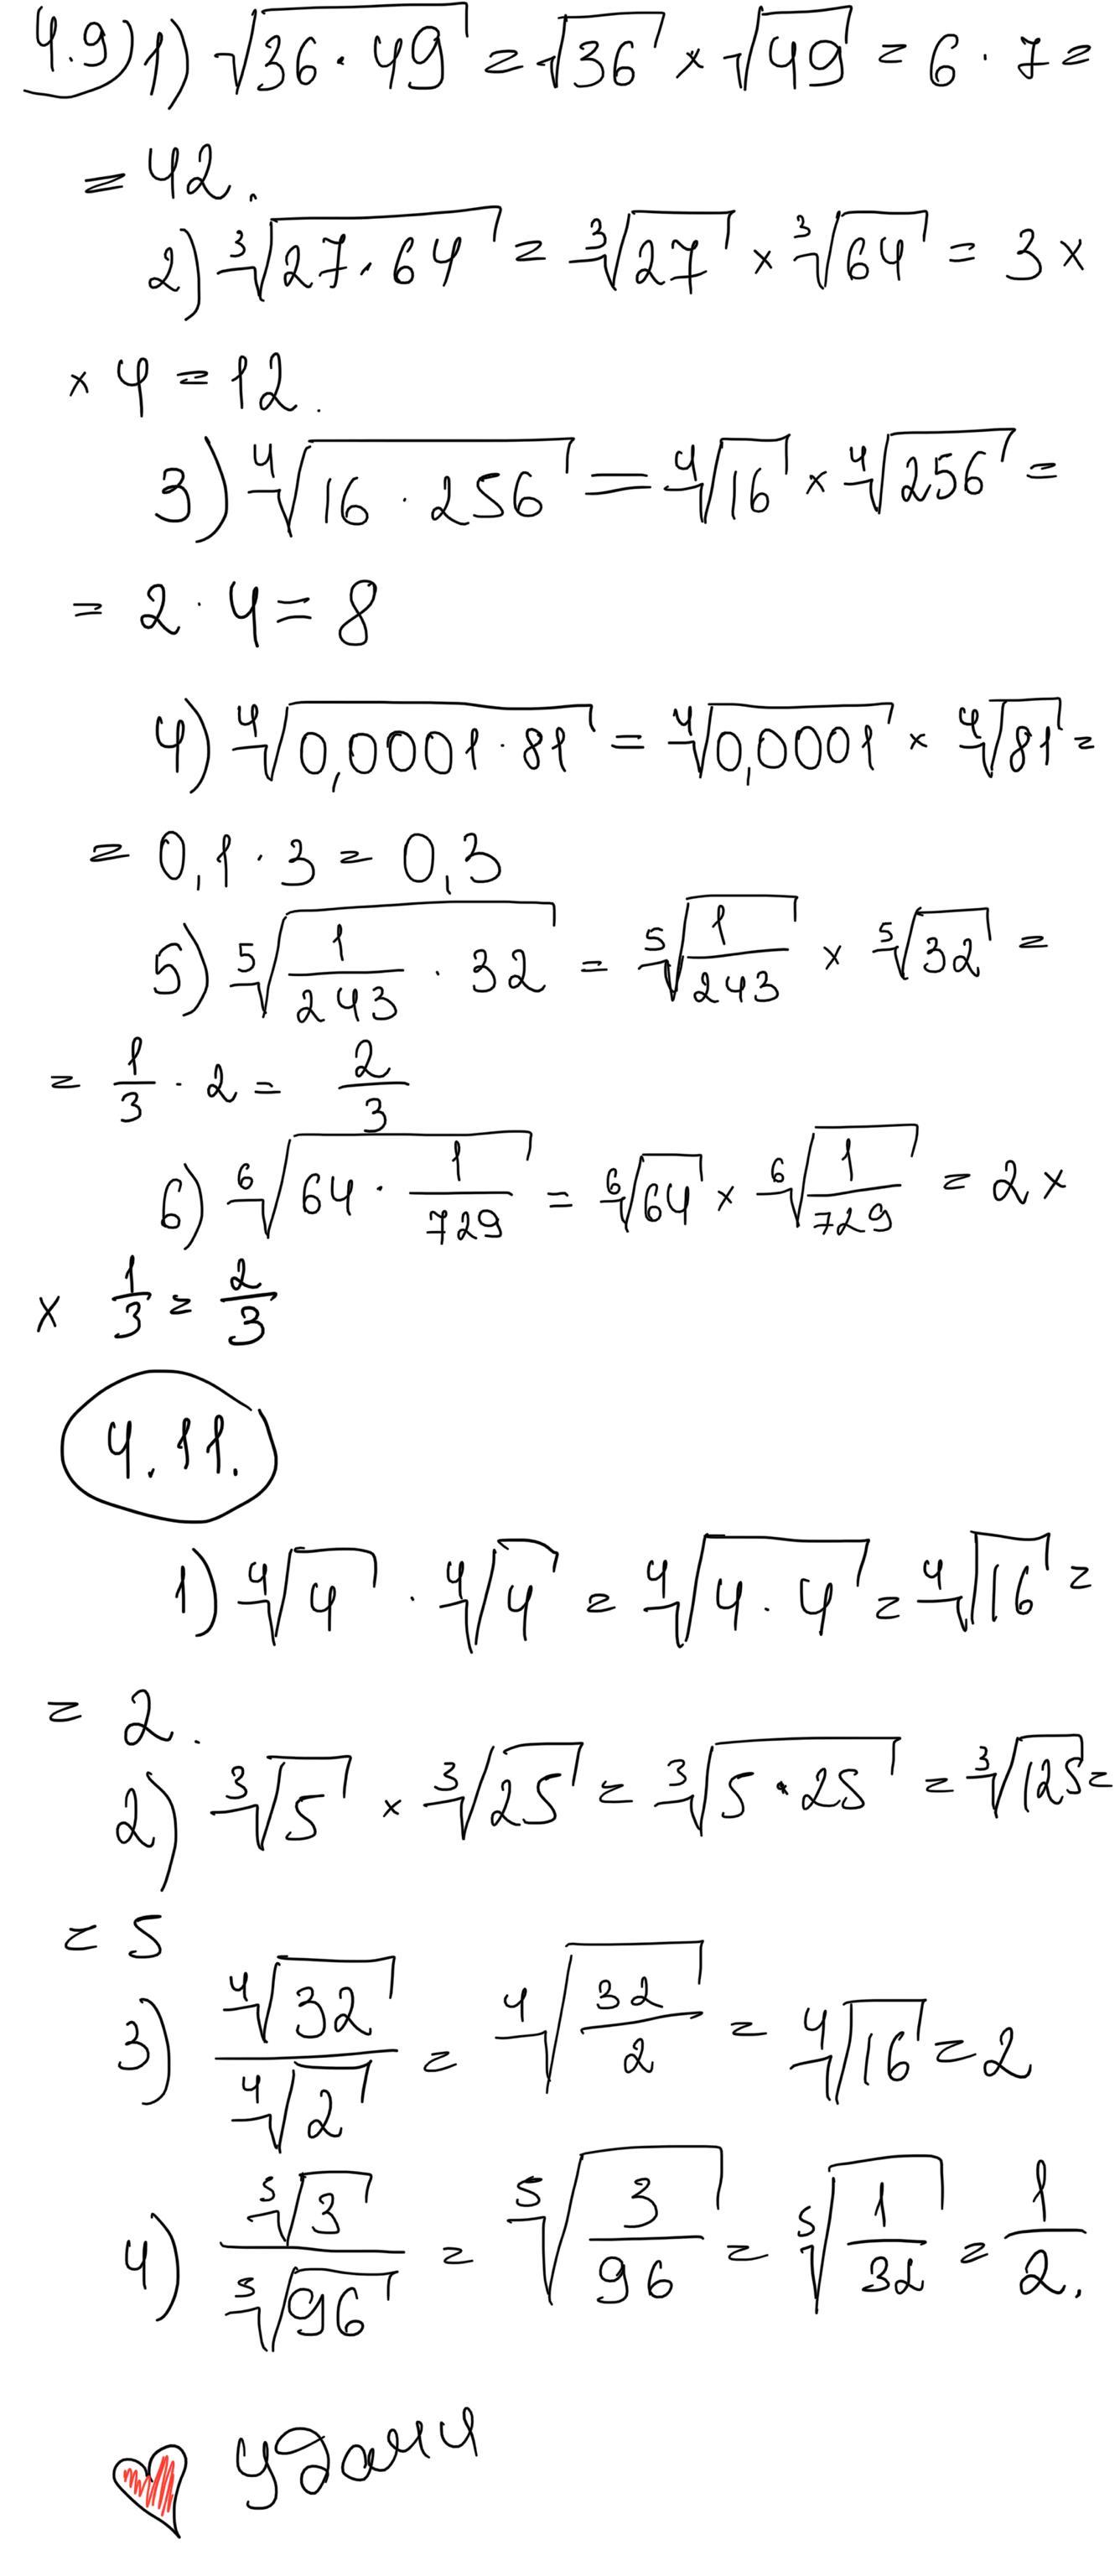 4.9) 1) √(36 · 49) = √36 × √49 = 6 · 7 =
= 42.
2) ∛(27 · 64) = ∛27 × ∛64 = 3 ×
× 4 = 12.
3) ∜(16 · 256) = ∜16 × ∜256 =
= 2 · 4 = 8
4) ∜(0,0001 · 81) = ∜0,0001 × ∜81 =
= 0,1 · 3 = 0,3
5) ⁵√(1/243 · 32) = ⁵√(1/243) × ⁵√32 =
= 1/3 · 2 = 2/3
6) ⁶√(64 · 1/729) = ⁶√64 × ⁶√(1/729) = 2 ×
× 1/3 = 2/3
4.11.
1) ∜4 · ∜4 = ∜(4 · 4) = ∜16 =
= 2.
2) ∛5 × ∛25 = ∛(5 · 25) = ∛125 =
= 5
3) ∜32/∜2 = ∜(32/2) = ∜16 = 2
4) ⁵√3/⁵√96 = ⁵√(3/96) = ⁵√(1/32) = 1/2.
удачи